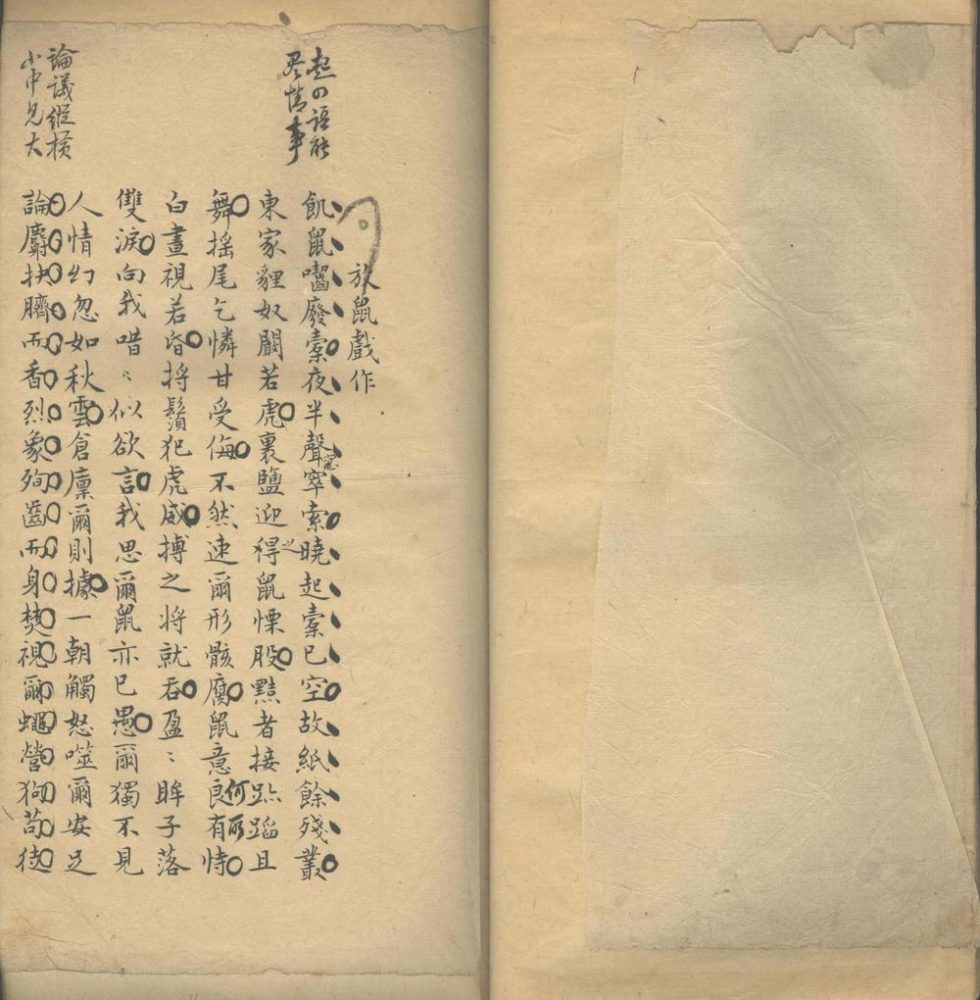 起四語能
盡情事
放鼠戲作
飢鼠嚙廢橐夜半聲窣索曉起橐已空故紙餘殘叢
東家貍奴鬬若虎裹鹽迎得之鼠慄股黠者接跡蹈且
舞搖尾乞憐甘受侮不然速爾形骸腐鼠意良何所有恃
白晝視若昏捋鬚犯虎威搏之將就吞盈〻眸子落
雙淚向我唶〻似欲言我思爾鼠亦已愚爾獨不見
人情幻忽如秋雲倉廩爾則據一朝觸怒噬爾安足
論麝抉臍而香烈象殉齒而身焚視爾蠅營狗苟徒
論議縱橫
小中見大